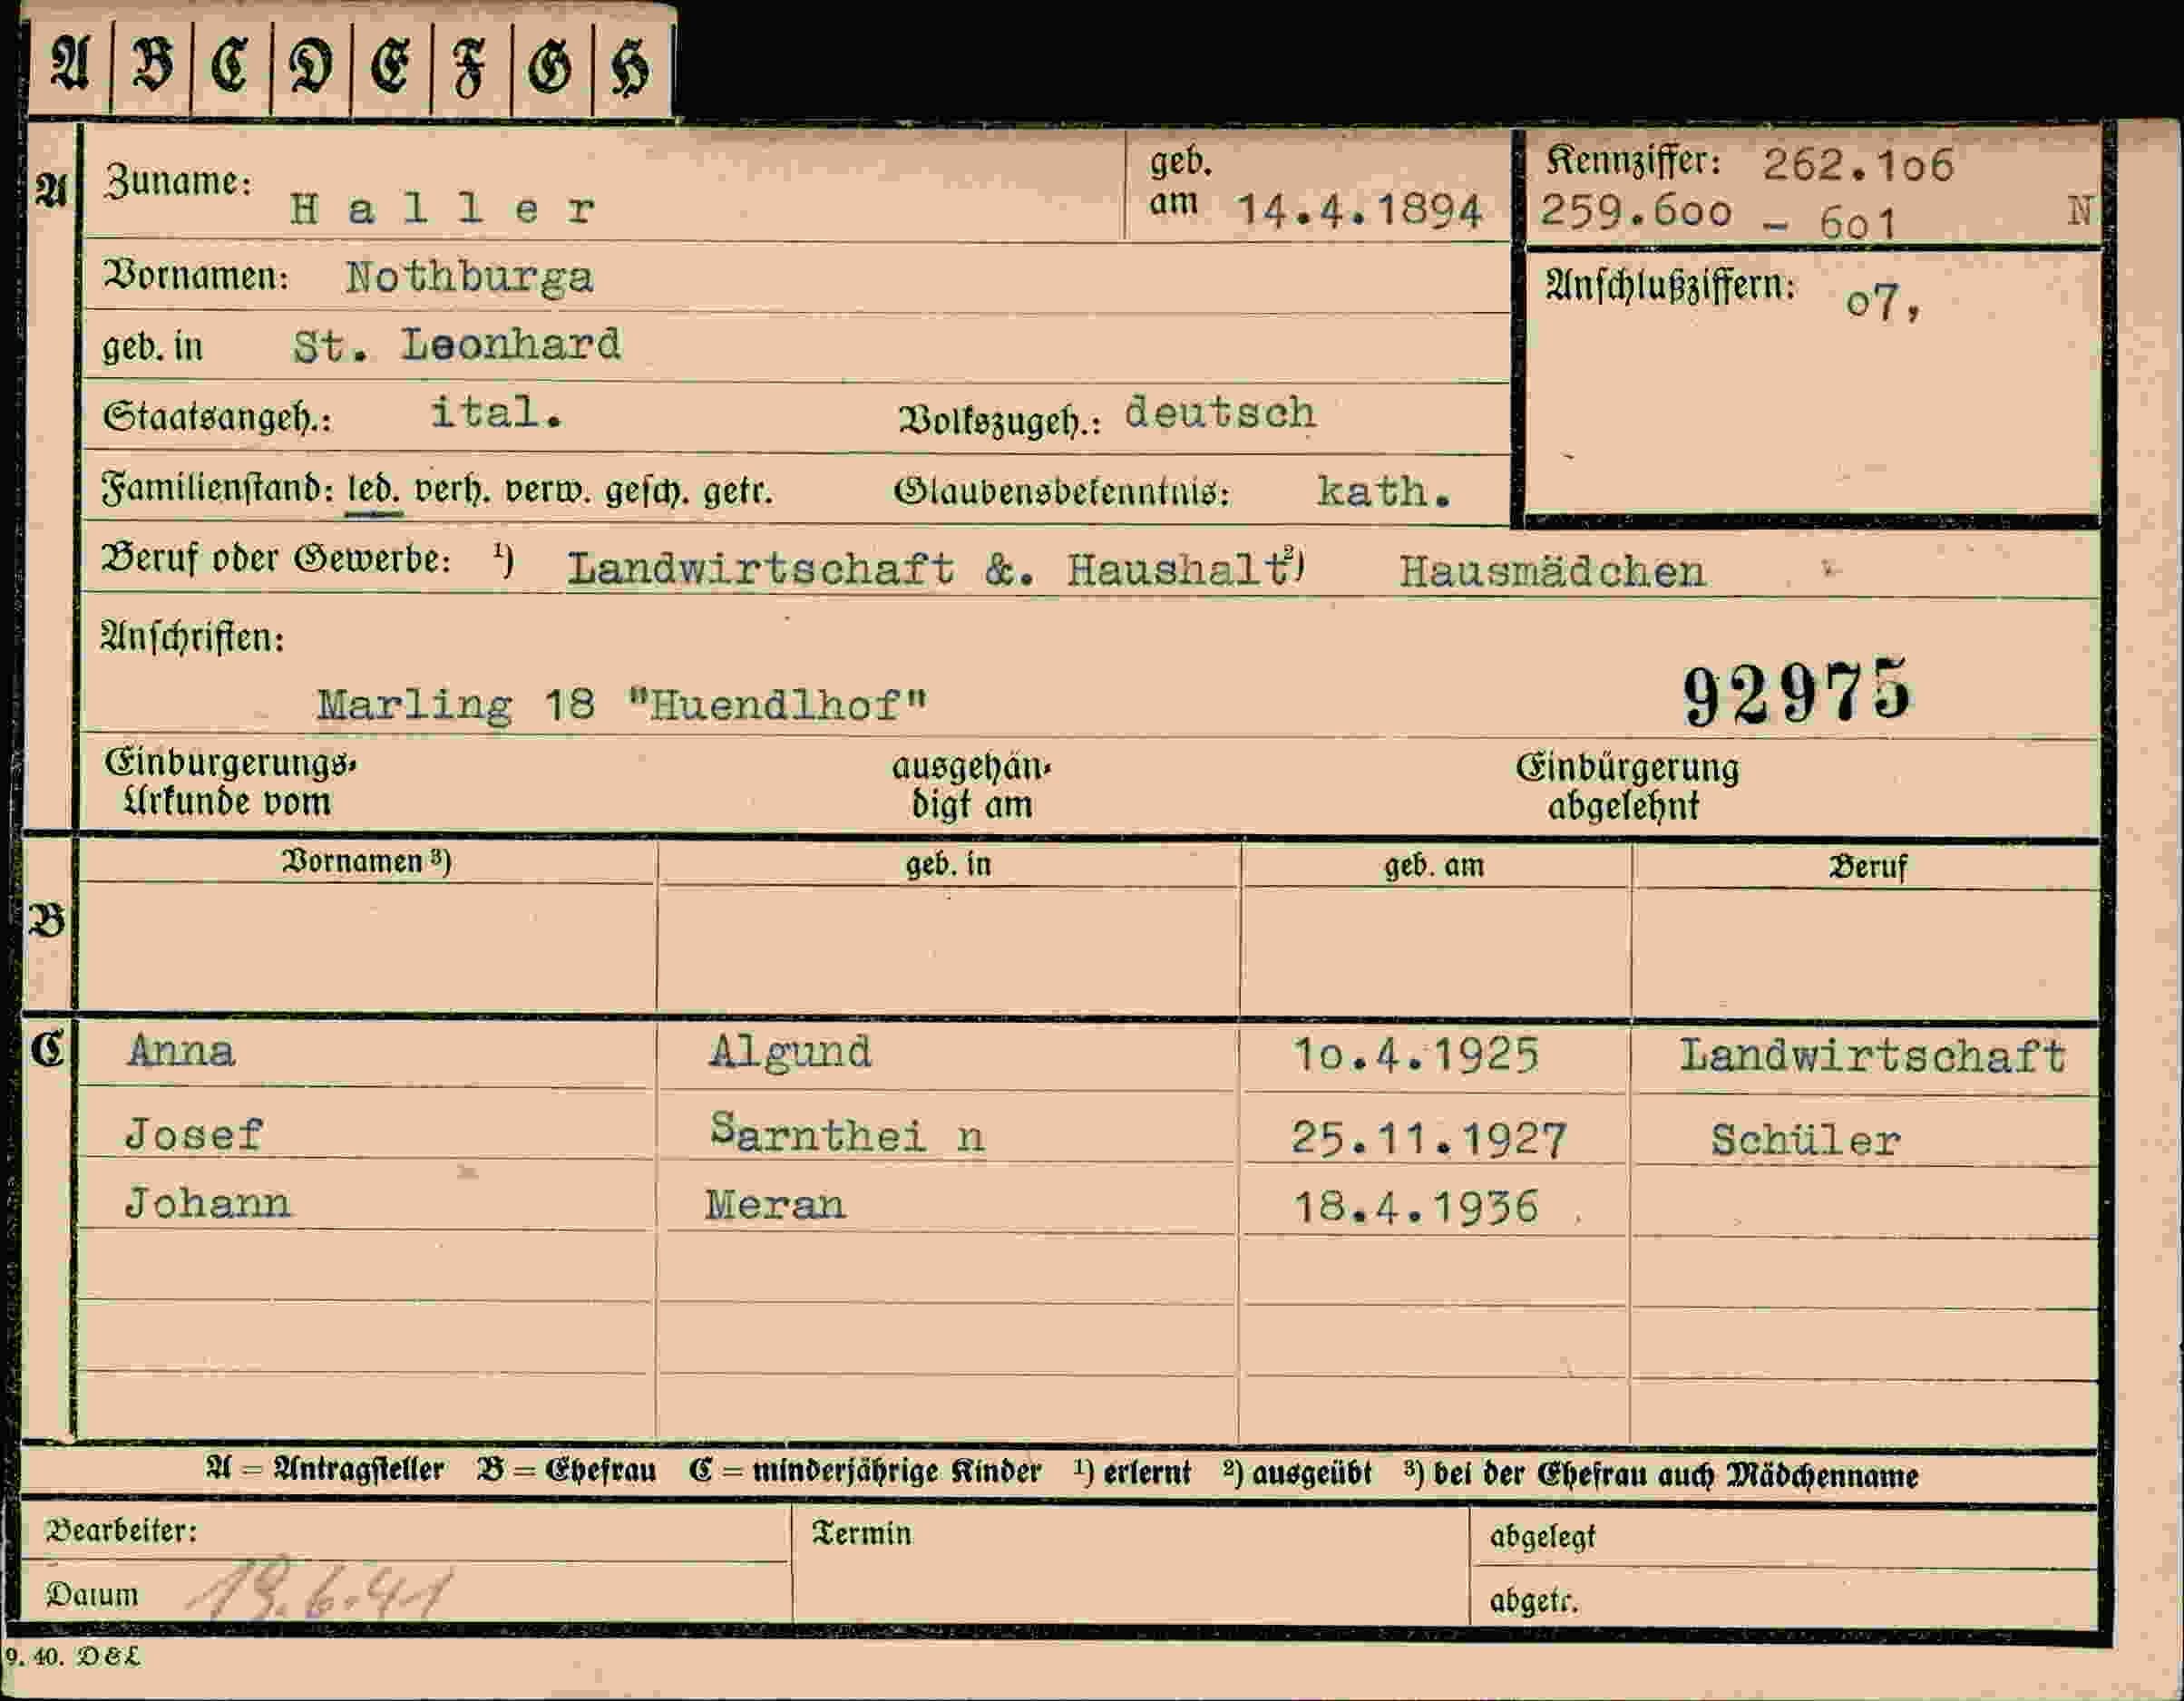 A B C D E F G H
A Zuname: Haller geb. am 14.4.1894
Kennziffer: 262.1o6
259.6oo - 6o1 N
Vornamen: Nothburga
Anschlußziffern: o7,
geb. in St. Leonhard
Staatsangeh.: ital. Volkszugeh.: deutsch
Familienstand: led. verh. verw. gesch. getr. Glaubensbekenntnis: kath.
Beruf oder Gewerbe: 1) Landwirtschaft &. Haushalt 2) Hausmädchen
Anschriften:
Marling 18 "Huendlhof" 92975
Einbürgerungs-Urkunde vom ausgehändigt am Einbürgerung abgelehnt
Vornamen 3) geb. in geb. am Beruf
B
C Anna Algund 1o.4.1925 Landwirtschaft
Josef Sarnthei n 25.11.1927 Schüler
Johann Meran 18.4.1936
A = Antragsteller B = Ehefrau C = minderjährige Kinder 1) erlernt 2) ausgeübt 3) bei der Ehefrau auch Mädchenname
Bearbeiter: Termin abgelegt
Datum 19.6.41 abgetr.
9. 40. D & L